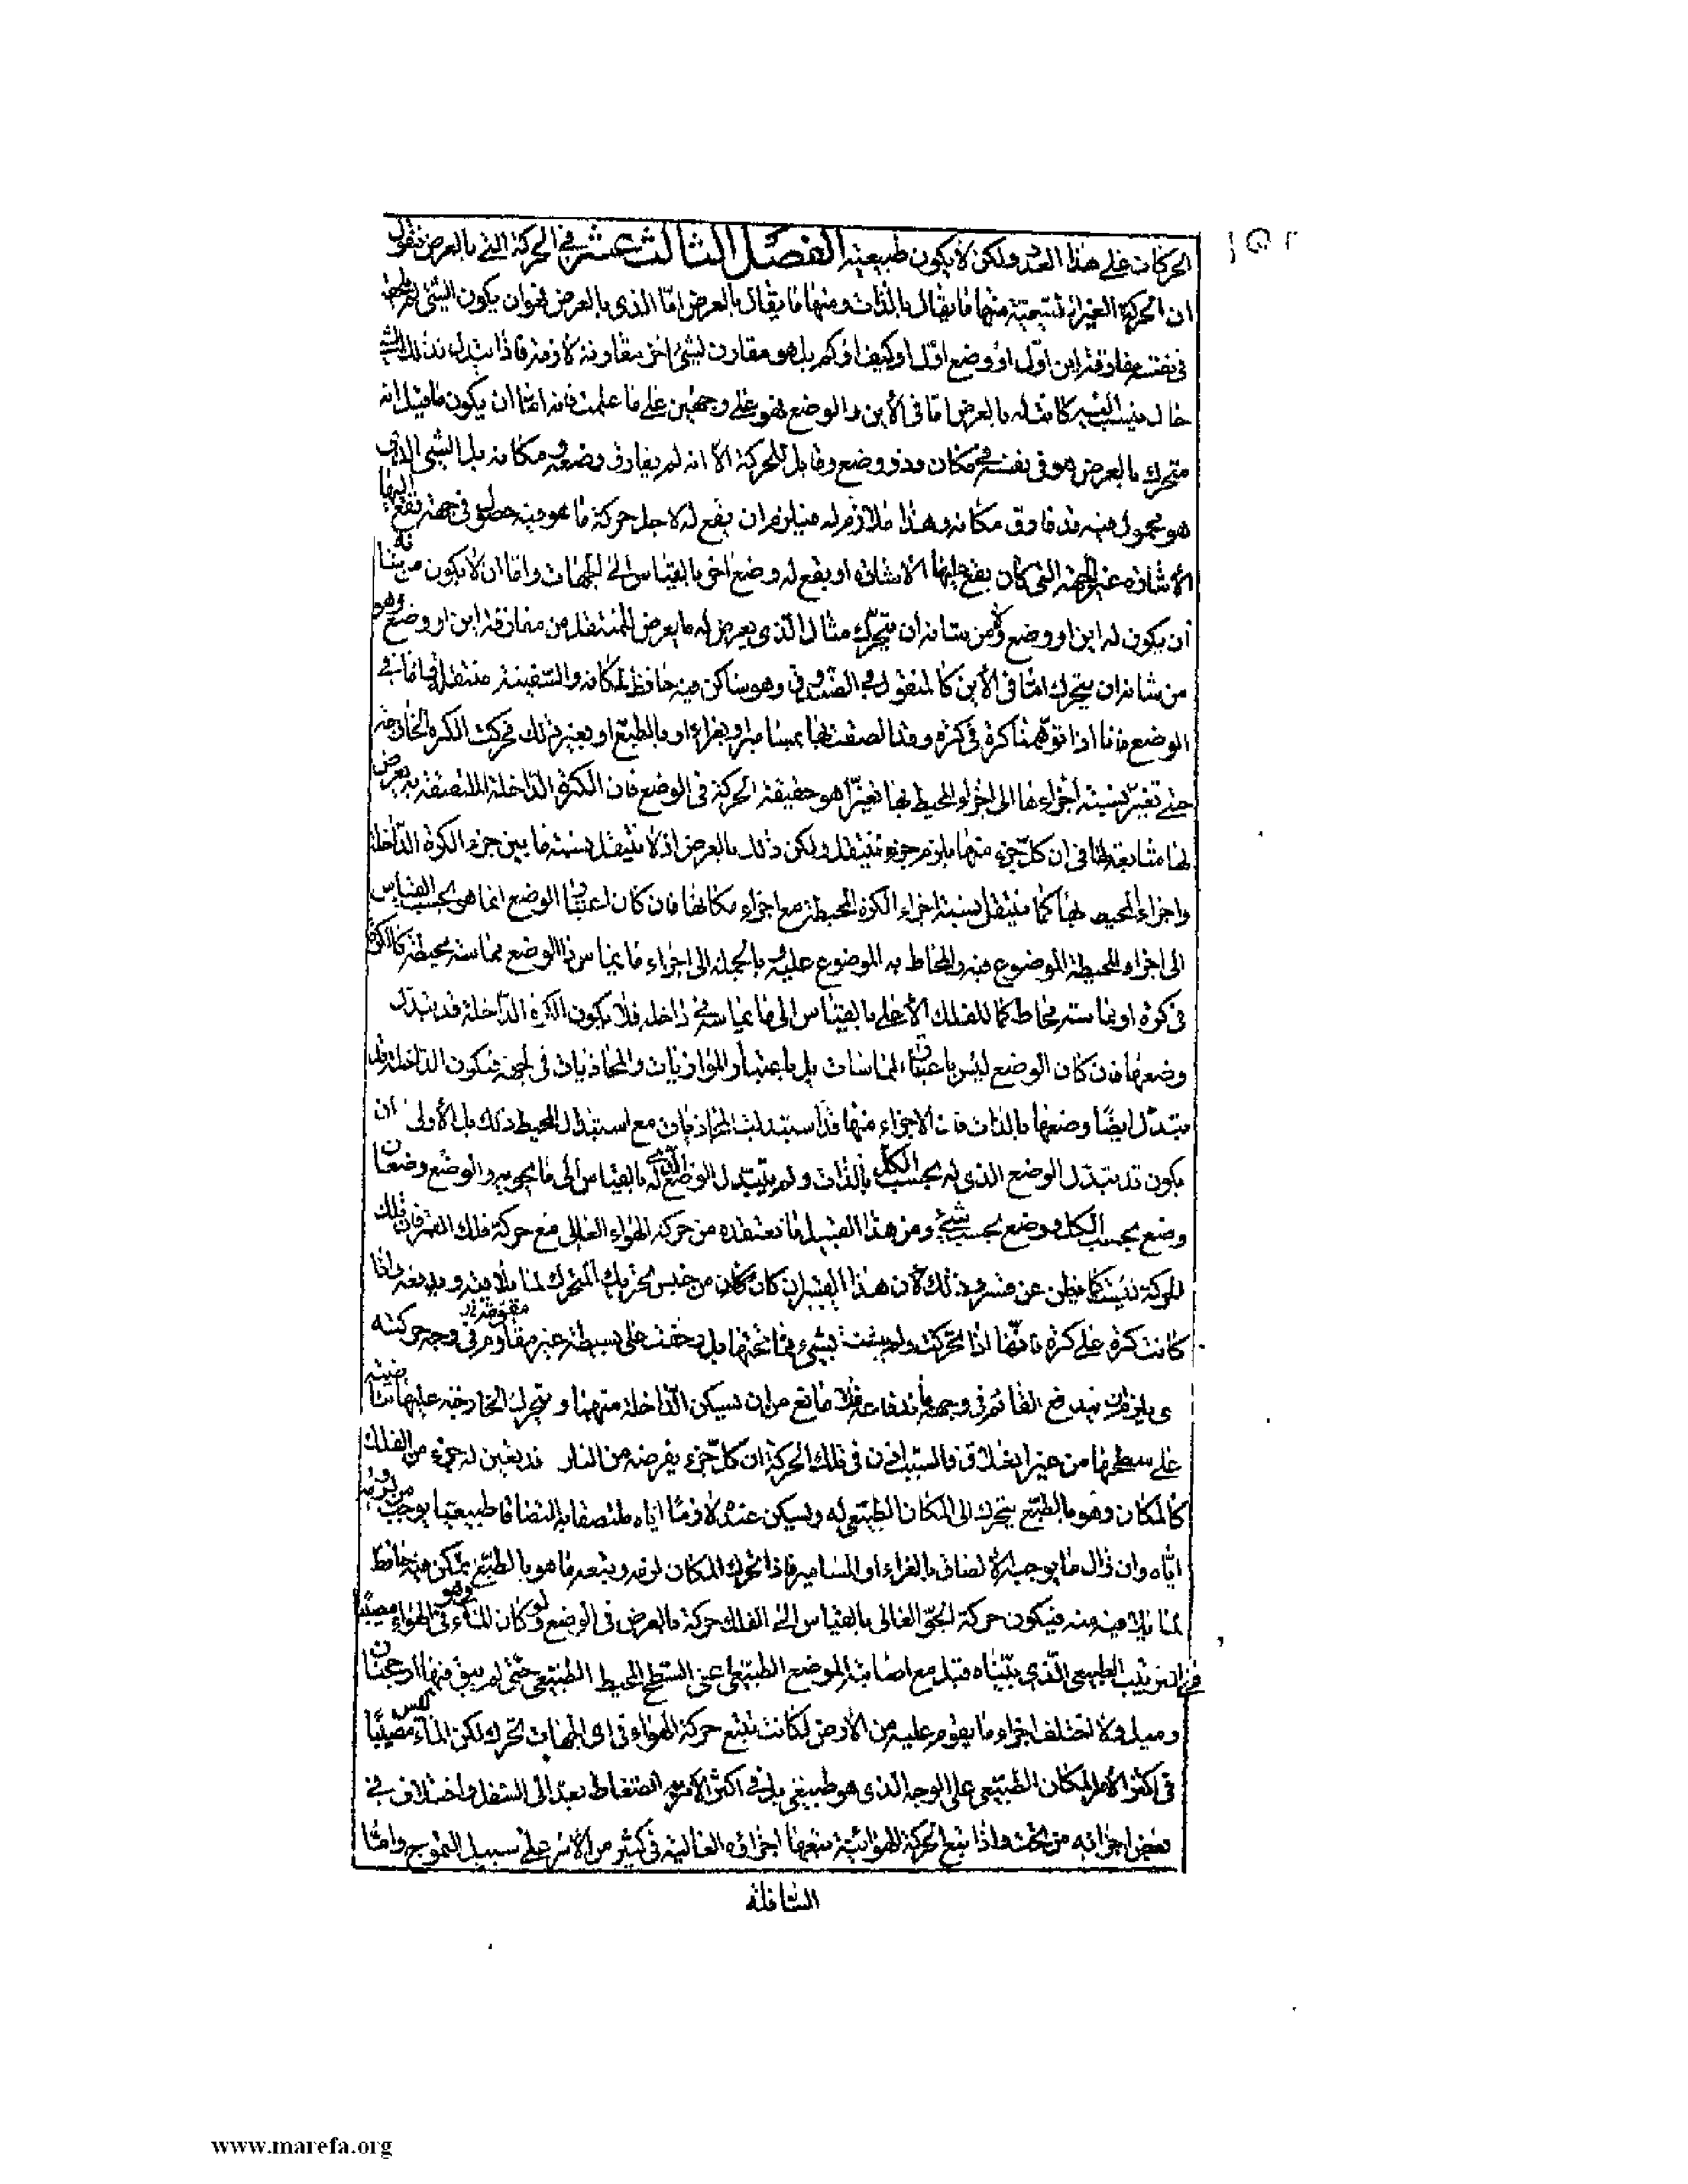 ١٥٢
الحركات على هذا العدد ولكن لا يكون طبيعيه الفصل الثالث عشر في الحركة التي بالعرض فنقول
ان الحركة الغير منها ما يقال بالذات ومنها ما يقال بالعرض اما الذى بالعرض فهو ان يكون الشئ لم يلحقه
فى نفسه مفارقة اين اول او وضع اول او كيف او كم بل هو مقارن لشئ اخر مقارنة لازمة فاذا تبدل لذلك الشئ
حال ينسب اليه كانت له بالعرض اما فى الأين والوضع فهو على وجهين على ما علمت فانه اما ان يكون ما قيل انه
متحرك بالعرض هو فى نفسه فى مكان وذو وضع وقابل للحركة الا انه لم يفارق وضعه ومكانه بل الشئ الذى
هو محمول فيه قد فارق مكانه وهذا ملازم له فيلزم ان يقع له لاجل حركة ما هو فيه حصول فى جهة تقع اليها
الأشارة غير الجهة التى كان يقع اليها الاشارة او يقع له وضع اخر بالقياس الى الجهات واما ان لا يكون من شانه
أن يكون له اين او وضع ولا من شانه ان يتحرك مثال الذى يعرض له ما يعرض للمنتقل من مفارقة اين او وضع وهو
من شانه ان يتحرك اما فى الأين كالمنقول فى الصندوق وهو ساكن فيه حافظ لمكانه والسفينة منتقل اما فى
الوضع فانا اذا توهمنا كرة فى كرة وقد الصقت بها بمسامير او بغراء او بالطبع او بغير ذلك فحركت الكرة الخارجة
حتى تغير نسبة أجزاءها الى اجزاء المحيط بها تغيرا هو حقيقة الحركة فى الوضع فان الكرة الداخلة الملتصقة به يعرض
لها متابعة لها فى ان كل جزء منها يلزم جزء منتقل ولكن ذلك بالعرض اذ لا تنتقل نسبة ما بين جزء الكرة الداخلة
واجزاء المحيط بها كما تنتقل نسبة اجزاء الكرة المحيطة مع اجزاء مكانها فان كان اعتبار الوضع انما هو بحسب القياس
الى اجزاء المحيط الموضوع فيه والمحاط به الموضوع عليه وبالجملة الى اجزاء ما يماس ذا الوضع مماسة محيط كالكرة
فى كرة او مماسة محاط كما للفلك الأعلى بالقياس الى ما يماسه فى داخله فلا يكون الكرة الداخلة قد تبدل
وضعها فان كان الوضع ليس باعتبار المماسات بل باعتبار الموازيات والمحاذيات فى الجهة فتكون الداخلة قد
تبدل ايضا وضعها بالذات فان الاجزاء منها قد استبدلت المحاذيات مع استبدال المحيط ذلك بل الأولى ان
يكون قد تبدل الوضع الذى له بحسب الكل بالذات ولم يتبدل الوضع الذى له بالقياس الى ما يحويه والوضع وضعان
وضع بحسب الكل ووضع بحسب شئ ومن هذا القبيل ما نعتقده من حركة الهواء العالى مع حركة فلك القمر فان تلك
الحركة ليست كما يظن عن قسر وذلك لان هذا القسر ان كان كان من جنس تحريك المتحرك لما يلاقيه ويدفعه واذا
كانت كرة على كرة فانها اذا تحركت ولم تتشبث بشئ مما تحتها بل زحفت على بسيطه غير مقاوم فى وجه حركته
فلا مانع من ان تسكن الداخلة منهما وتتحرك الخارجة عليها
على سطحها من غير فالسبب اذن فى تلك الحركة ان كل جزء يفرضه من النار قد يعين له جزء من الفلك
كالمكان وهو بالطبع يتحرك الى المكان الطبيعى له ويسكن عنده لازما اياه ملتصقا به التصاقا طبيعيا يوجب من لزومه
اياه وان زال ما يوجبه الالصاق بالغراء او المسامير فاذا تحرك المكان لزمه وتبعه ما هو بالطبع متمكن فيه حافظ
لما يليه منه فيكون حركة الجو العالى بالقياس الى الفلك حركة بالعرض فى الوضع ولو كان الماء فى الهواء مصيبا
فى الترتيب الطبيعى الذى بيناه قبل مع اصابة الموضع الطبيعى عنى السطح المحيط الطبيعى حتى لم يبق فيها ارجحنان
وميل ولا تختلف اجزاء ما يقوم عليه من الأرض لكانت تتبع حركة الهواء فى اى الجهات تحرك لكن الماء ليس مصيبا
فى اكثر الأمر المكان الطبيعى على الوجه الذى هو طبيعى بل فى اكثر الأمر له انضغاط بعد الى السفل واختلاف فى
بعض اجزائه من تحت واذا تبع الحركة الهوائية تبعها اجزاؤه العالية فى كثير من الأمر على سبيل التموج واما
السافلة
www.marefa.org